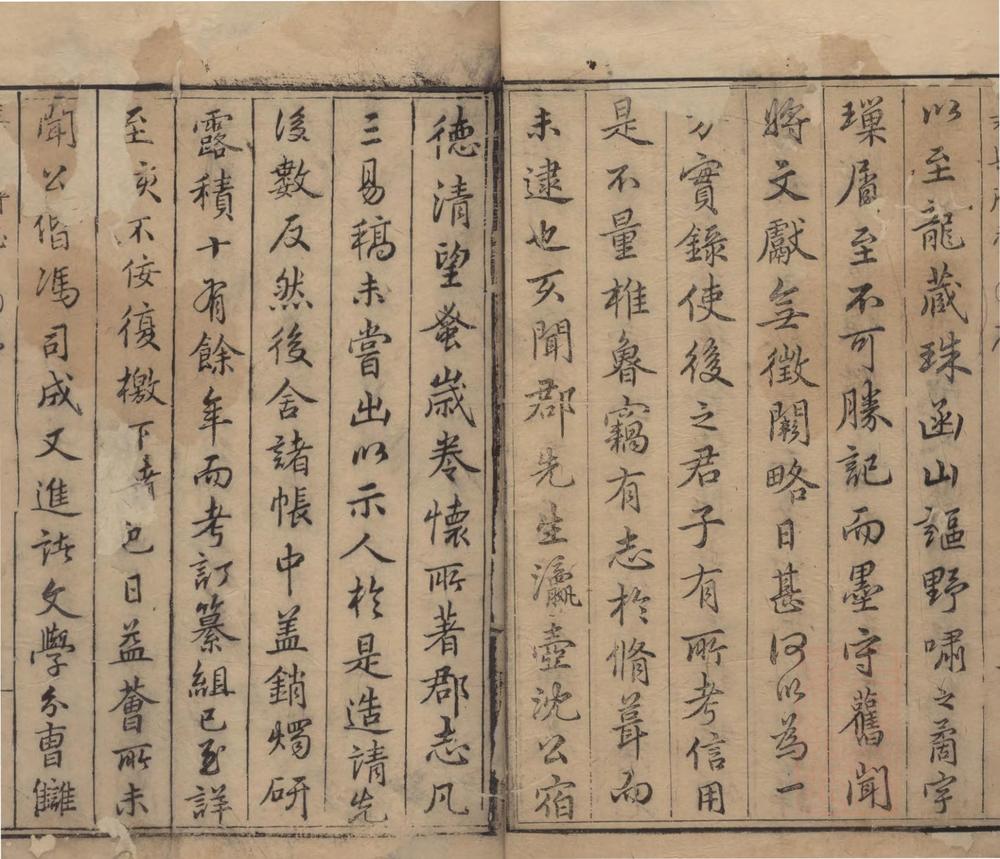 以至龍藏珠函山謳野嘯之裔字
璅屑至不可勝記而墨守舊聞
將文獻無徵闕略日甚何以為一
方實錄使後之君子有所考信用
是不量椎魯竊有志於脩葺而
未逮也亥聞郡先生瀛壺沈公宿
德清望蚤歲卷懷所著郡志凡
三易稿未嘗出以示人於是造請先
後數反然後舍諸帳中盖銷燭研
露積十有餘年而考訂纂組已至詳
至亥不佞復檄下邑日益薈所未
聞公偕馮司成又進諸文學分曹讎